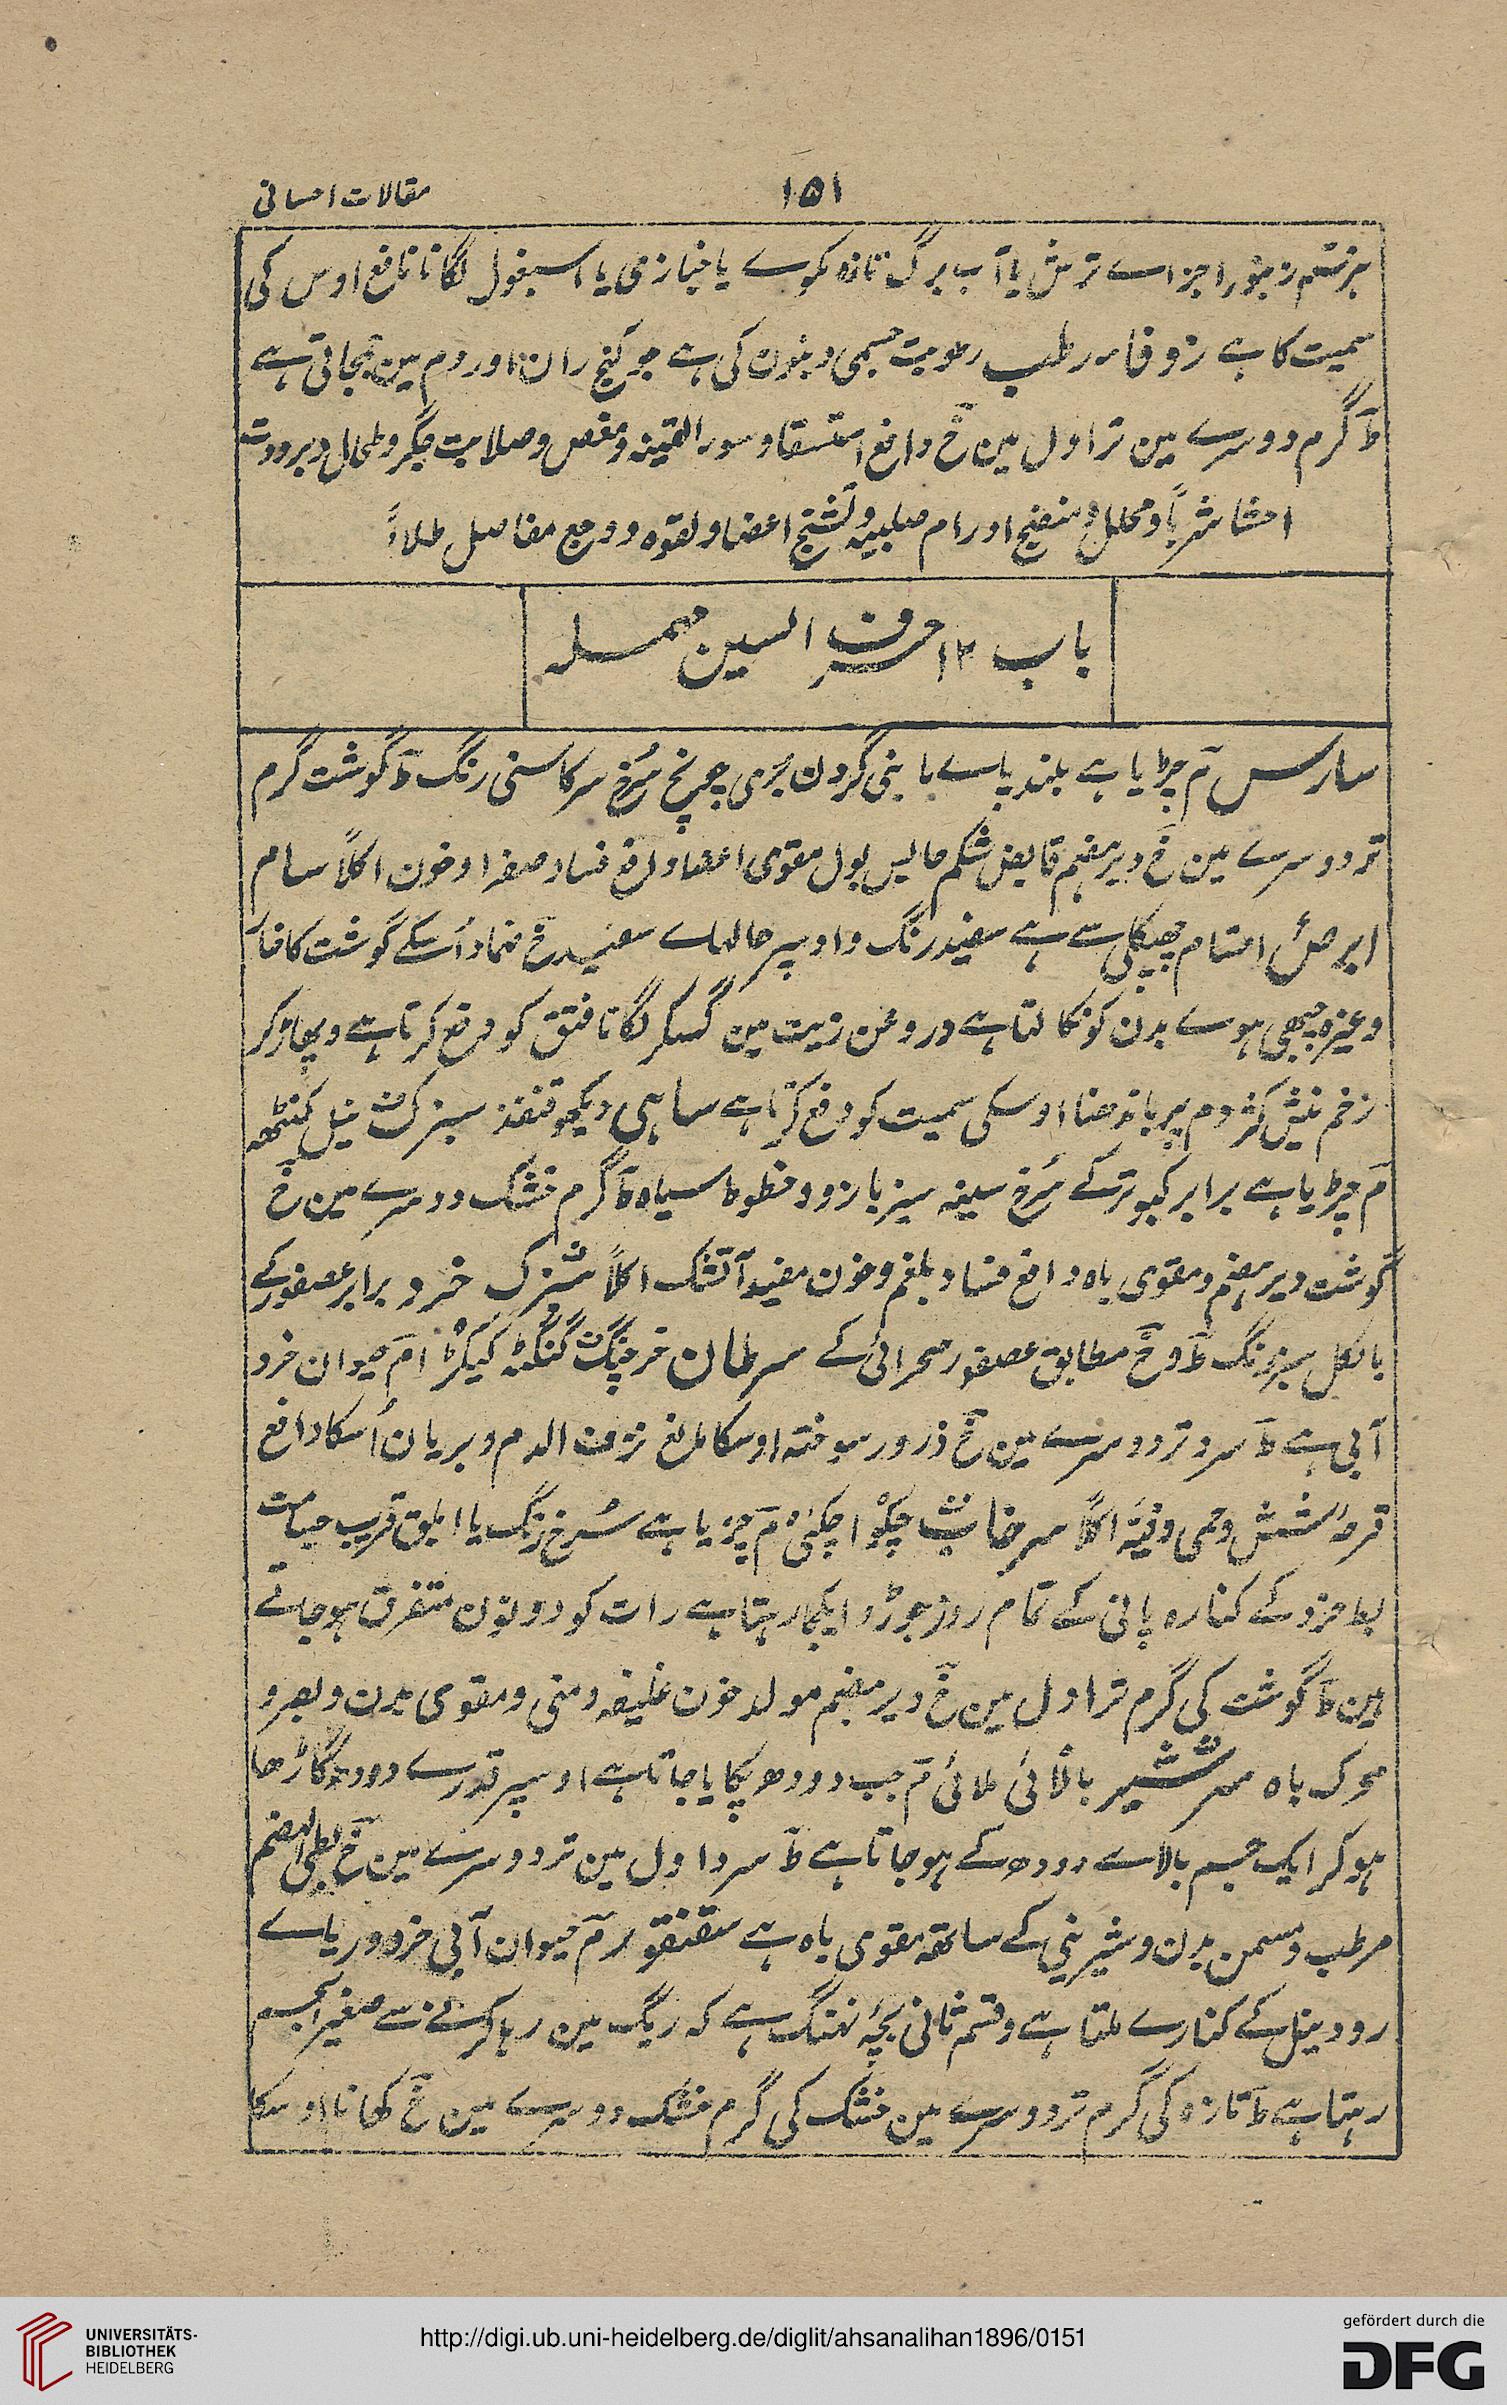 ۱۵۱
مقالات احسانی
ہرقسم زنبور اجزاے ترش یا آب برگ تازہ مکوے یا خبازی یا اسبغول لگانا نافع اوس کی
سمیت کا ہے زوفاے رطب رطوبت جسمی دنبون کی ہے جو کنج ران اور دم مین جمجاتی ہے
طَ گرم دوسرے مین تر اول مین خَ دافع استسقا و سوء القنیہ و مغص و صلابت جگر و طحال و برودت
احشا شرباً و محلل و منضج اورام صلبیہ و تشنج اعضا و لقوہ و وجع مفاصل طلاءً
باب ۱۲ حرف السین مہملہ
سارس مَ چڑیا ہے بلند پاے با بنی گردن بڑی چونچ سُرخ سر کاسنی رنگ طَ گوشت گرم
تر دوسرے مین خَ دیرہضم قابض شکم حابس بول مقوی اعضا دافع فساد صفرا و خون اکلاً سام
ابرص اقسام چھپکلی سے ہے سفید رنگ و اوسپر خالہاے سفید خَ ضماد اُسکے گوشت کا خار
وغیرہ چبھی ہوے بدن کو نکالتا ہے و روغن زیت مین گھسکر لگانا فتق کو دفع کرتا ہے و پھاڑ کر
زخم نیش کژدم پر باندھنا اوسکی سمیت کو دفع کرتا ہے ساہی دیکھو قنفذ سبزک ف نیل کنٹھ
مَ چڑیا ہے برابر کبوتر کے سُرخ سینہ سبز بازو و خطوط سیاہ طَ گرم خشک دوسرے مین خَ
گوشت دیرہضم و مقوی باہ دافع فساد بلغم و خون مفید آتشک اکلاً سبزک خرد برابر عصفور کے
بالکل سبزرنگ طَ و خَ مطابق عصفور صحرائی کے سرطان خرچنگ ف گنگٹہ کیکڑا مَ حیوان خرد
آبی ہے طَ سرد تر دوسرے مین خَ ذرور سوختہ اوسکا مانع نزف الدم و بریان اُسکا دافع
قرحۂ شش و حمی دقیہ اکلاً سرخاب ف چکوا چکئی مَ چڑیا ہے سُرخ رنگ یا ابلق قریب جسامت
بط خرد کے کنارہ پانی کے تمام روز جوڑہ ایکجا رہتا ہے رات کو دونون متفرق ہوجاتے
ہین طَ گوشت کی گرم تر اول مین خَ دیرہضم مولد خون غلیظ و منی و مقوی بدن و بصر و
محرک باہ سرشیر ف بالائی ملائی مَ جب دودھ پکایا جاتا ہے اوسپر قدرے دودھ گاڑھا
ہوکر ایک جسم بالاے دودھ کے ہوجاتا ہے طَ سرد اول مین تر دوسرے مین خَ بطی الہضم
مرطب و مسمن بدن و شیرینی کے ساتھ مقوی باہ ہے سقنقور مَ حیوان آبی خرد دریاے
رود نیل کے کنارے ملتا ہے و قسم ثانی بچۂ نہنگ ہے کہ ریگ مین رہا کرنے سے صغیر الجسم
رہتا ہے طَ تازہ کی گرم تر دوسرے مین خشک کی گرم خشک دوسرے مین خَ کھانا اوسکا
UNIVERSITÄTS-
BIBLIOTHEK
HEIDELBERG
http://digi.ub.uni-heidelberg.de/diglit/ahsanalihan1896/0151
gefördert durch die
DFG